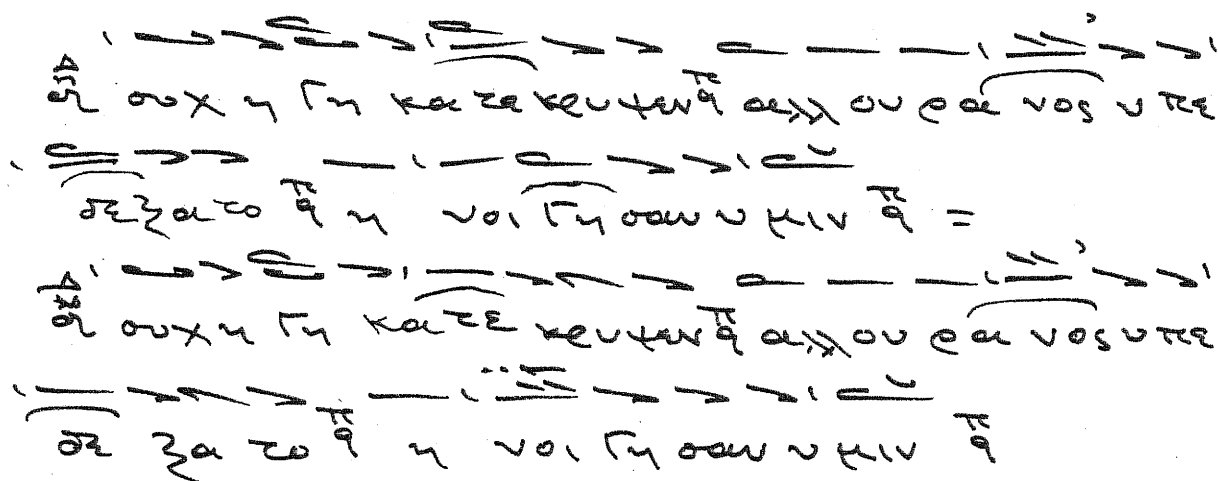 ουχ η γη κα τε κρυψεν αλλ ου ρα νος υ πε
δε ξα το η νοι γη σαν υ μιν =
ουχ η γη κα τε κρυψεν αλλ ου ρα νος υ πε
δε ξα το η νοι γη σαν υ μιν